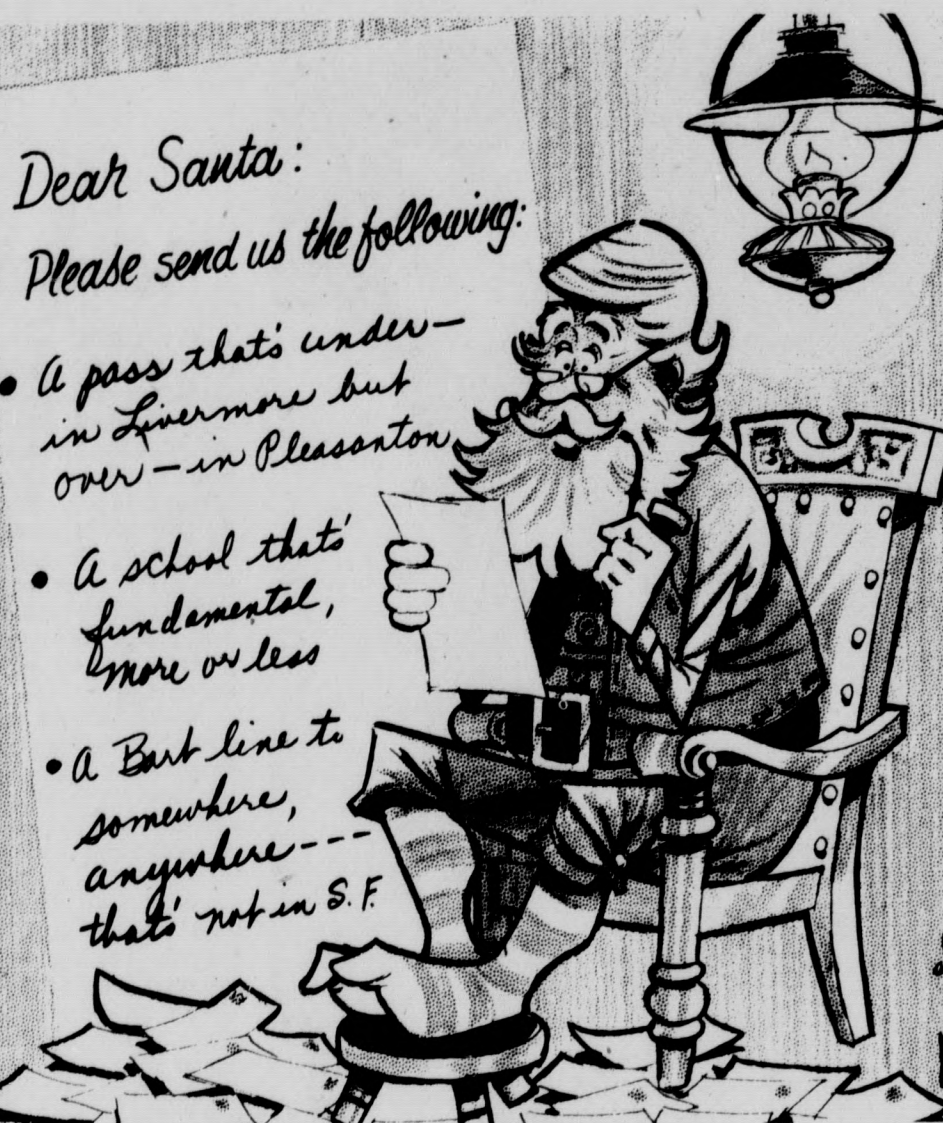 Dear Santa:
Please send us the following:
• A pass that's under—
in Livermore but
over—in Pleasanton
• A school that's
fundamental,
more or less
• A Bart line to
somewhere,
anywhere---
that's not in S.F.